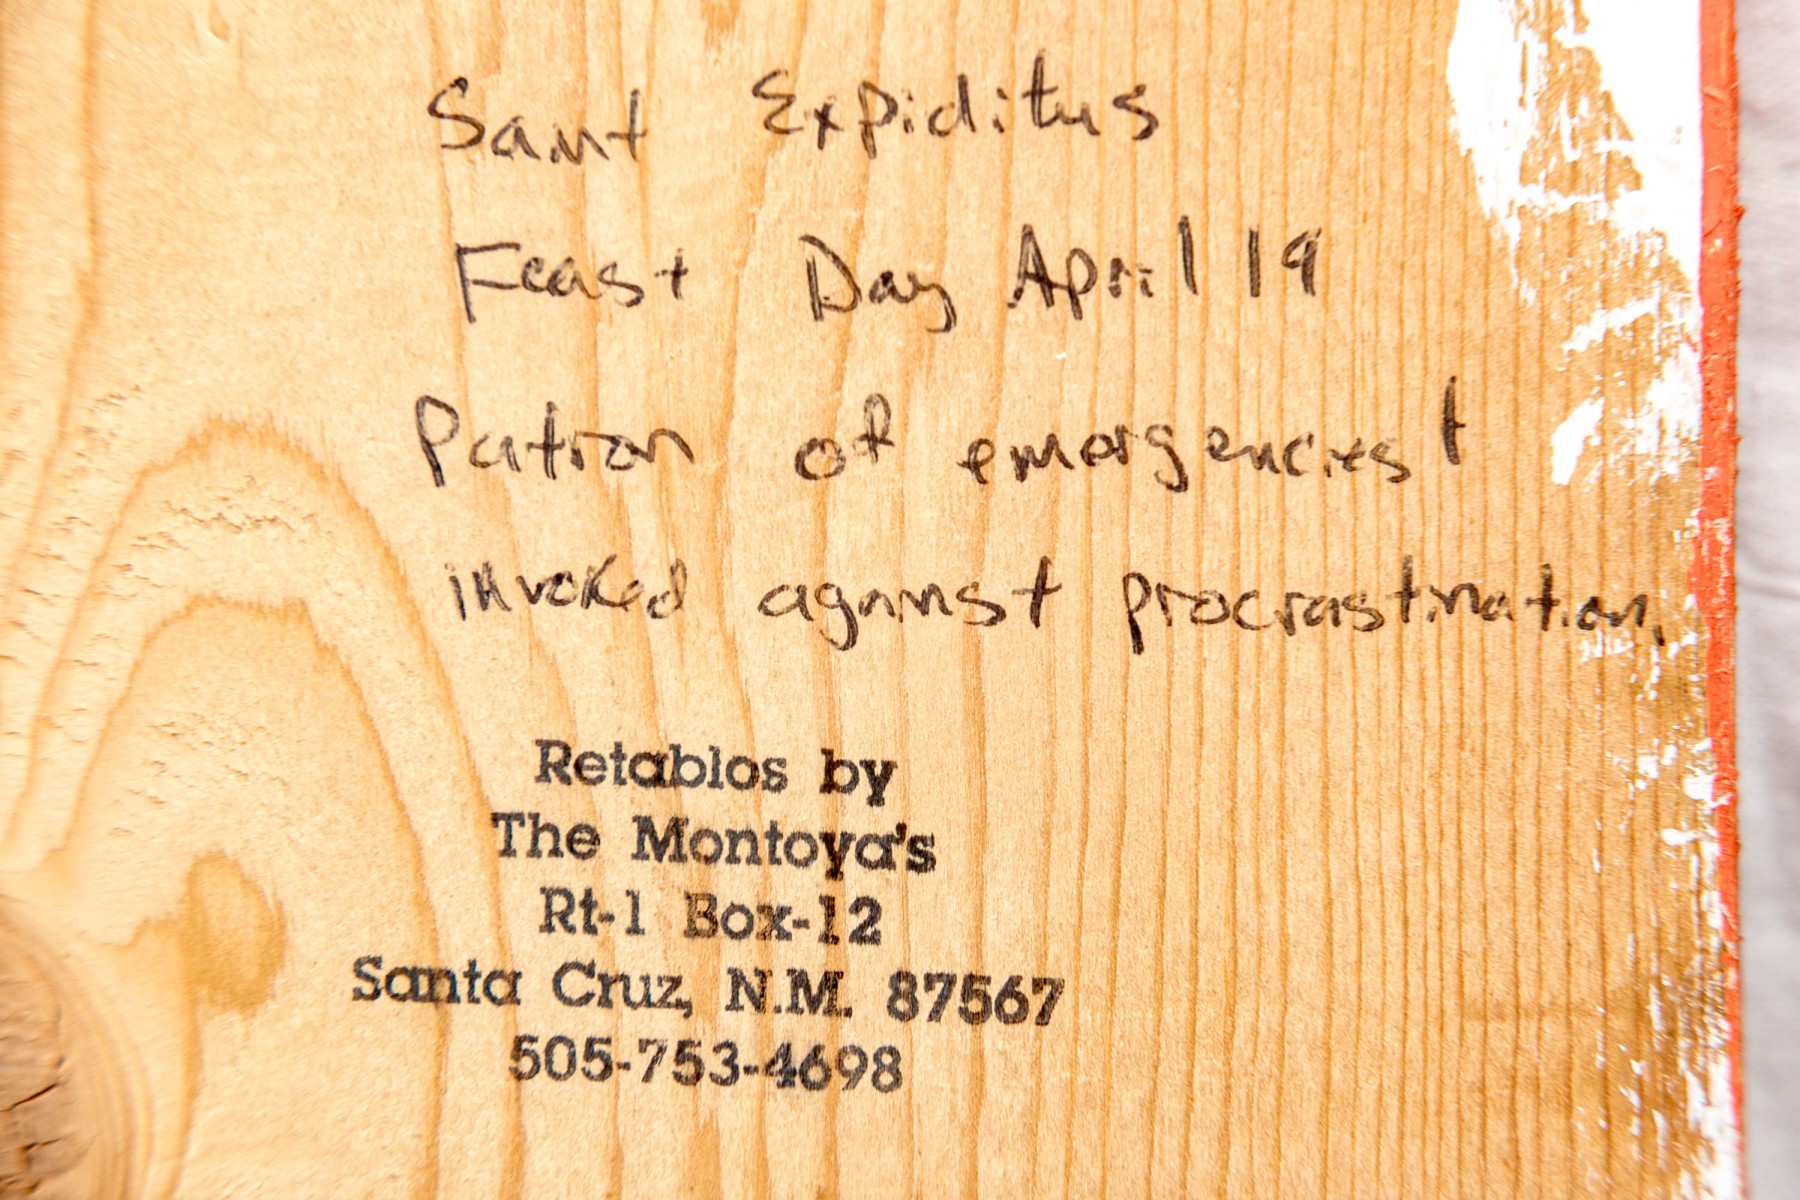 Saint Expiditus
Feast Day April 19
Patron of emergencies +
invoked against procrastination.
Retablos by
The Montoya's
Rt-1 Box-12
Santa Cruz, N.M. 87567
505-753-4698